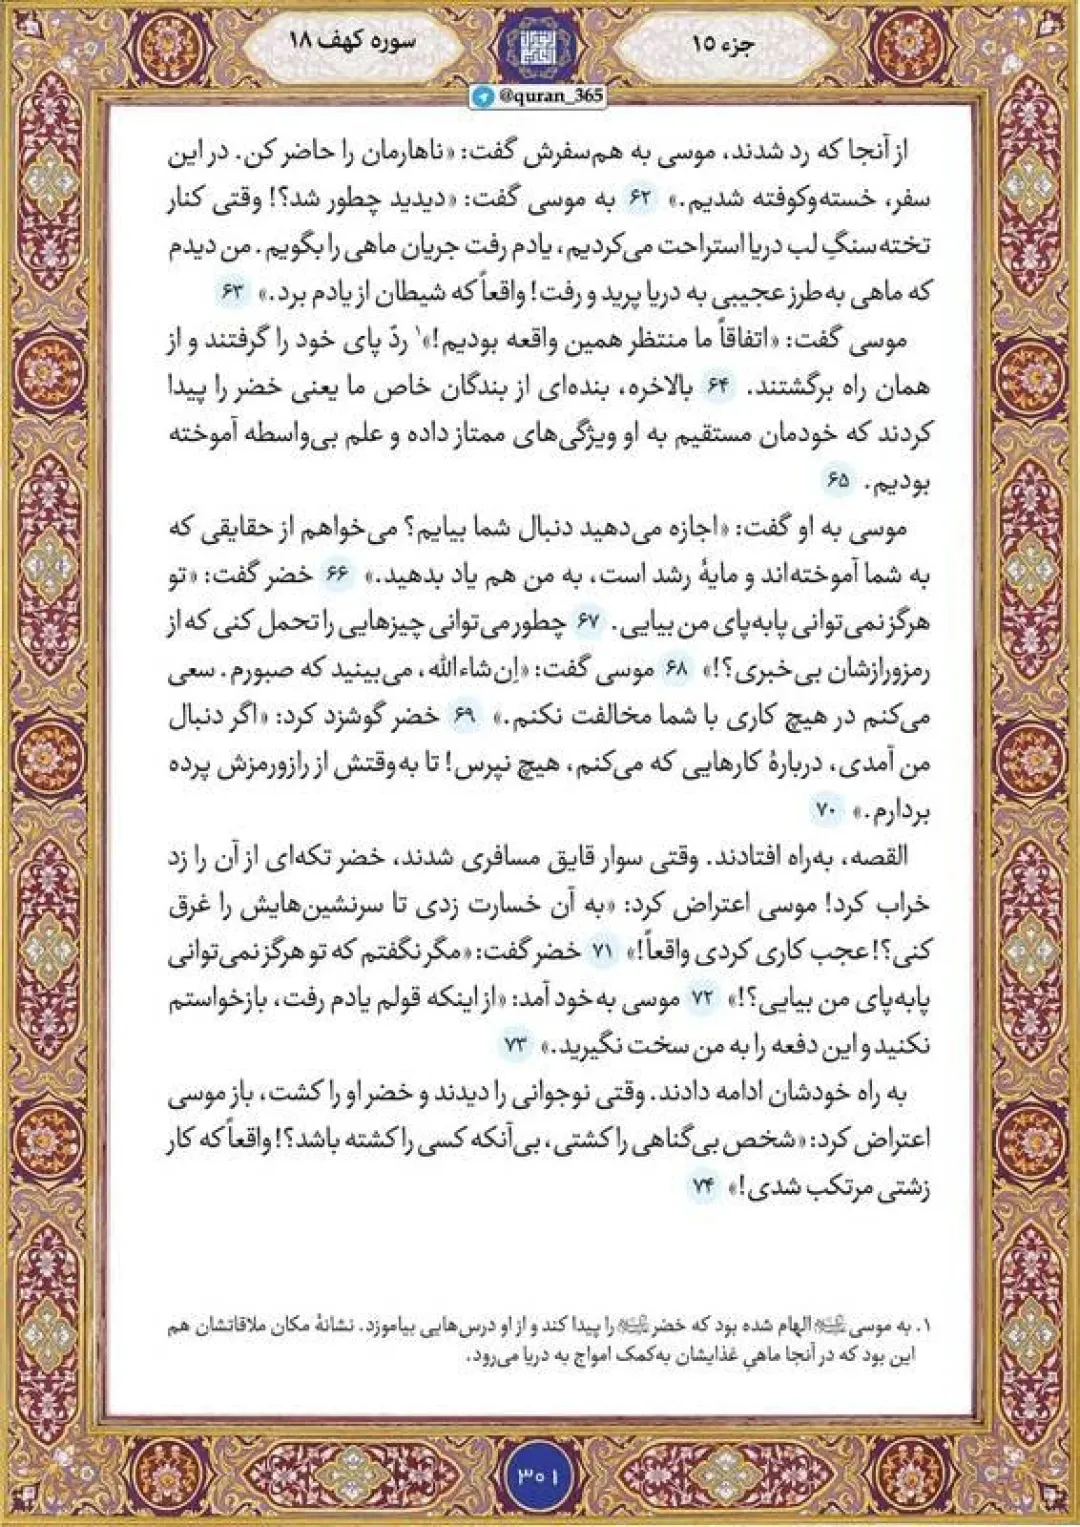 جزء ۱۵
سوره کهف ۱۸
@quran_365
از آنجا که رد شدند، موسی به هم‌سفرش گفت: «ناهارمان را حاضر کن. در این
سفر، خسته‌وکوفته شدیم.» ۶۲ به موسی گفت: «دیدید چطور شد؟! وقتی کنار
تخته‌سنگِ لب دریا استراحت می‌کردیم، یادم رفت جریان ماهی را بگویم. من دیدم
که ماهی به‌طرز عجیبی به دریا پرید و رفت! واقعاً که شیطان از یادم برد.» ۶۳
موسی گفت: «اتفاقاً ما منتظر همین واقعه بودیم!»۱ ردّ پای خود را گرفتند و از
همان راه برگشتند. ۶۴ بالاخره، بنده‌ای از بندگان خاص ما یعنی خضر را پیدا
کردند که خودمان مستقیم به او ویژگی‌های ممتاز داده و علم بی‌واسطه آموخته
بودیم. ۶۵
موسی به او گفت: «اجازه می‌دهید دنبال شما بیایم؟ می‌خواهم از حقایقی که
به شما آموخته‌اند و مایهٔ رشد است، به من هم یاد بدهید.» ۶۶ خضر گفت: «تو
هرگز نمی‌توانی پابه‌پای من بیایی. ۶۷ چطور می‌توانی چیزهایی را تحمل کنی که از
رمزورازشان بی‌خبری؟!» ۶۸ موسی گفت: «اِن‌شاءالله، می‌بینید که صبورم. سعی
می‌کنم در هیچ کاری با شما مخالفت نکنم.» ۶۹ خضر گوشزد کرد: «اگر دنبال
من آمدی، دربارهٔ کارهایی که می‌کنم، هیچ نپرس! تا به‌وقتش از رازورمزش پرده
بردارم.» ۷۰
القصه، به‌راه افتادند. وقتی سوار قایق مسافری شدند، خضر تکه‌ای از آن را زد
خراب کرد! موسی اعتراض کرد: «به آن خسارت زدی تا سرنشین‌هایش را غرق
کنی؟! عجب کاری کردی واقعاً!» ۷۱ خضر گفت: «مگر نگفتم که تو هرگز نمی‌توانی
پابه‌پای من بیایی؟!» ۷۲ موسی به‌خود آمد: «از اینکه قولم یادم رفت، بازخواستم
نکنید و این دفعه را به من سخت نگیرید.» ۷۳
به راه خودشان ادامه دادند. وقتی نوجوانی را دیدند و خضر او را کشت، باز موسی
اعتراض کرد: «شخص بی‌گناهی را کشتی، بی‌آنکه کسی را کشته باشد؟! واقعاً که کار
زشتی مرتکب شدی!» ۷۴
۱. به موسی الهام شده بود که خضر را پیدا کند و از او درس‌هایی بیاموزد. نشانهٔ مکان ملاقاتشان هم
این بود که در آنجا ماهیِ غذایشان به‌کمک امواج به دریا می‌رود.
۳۰۱